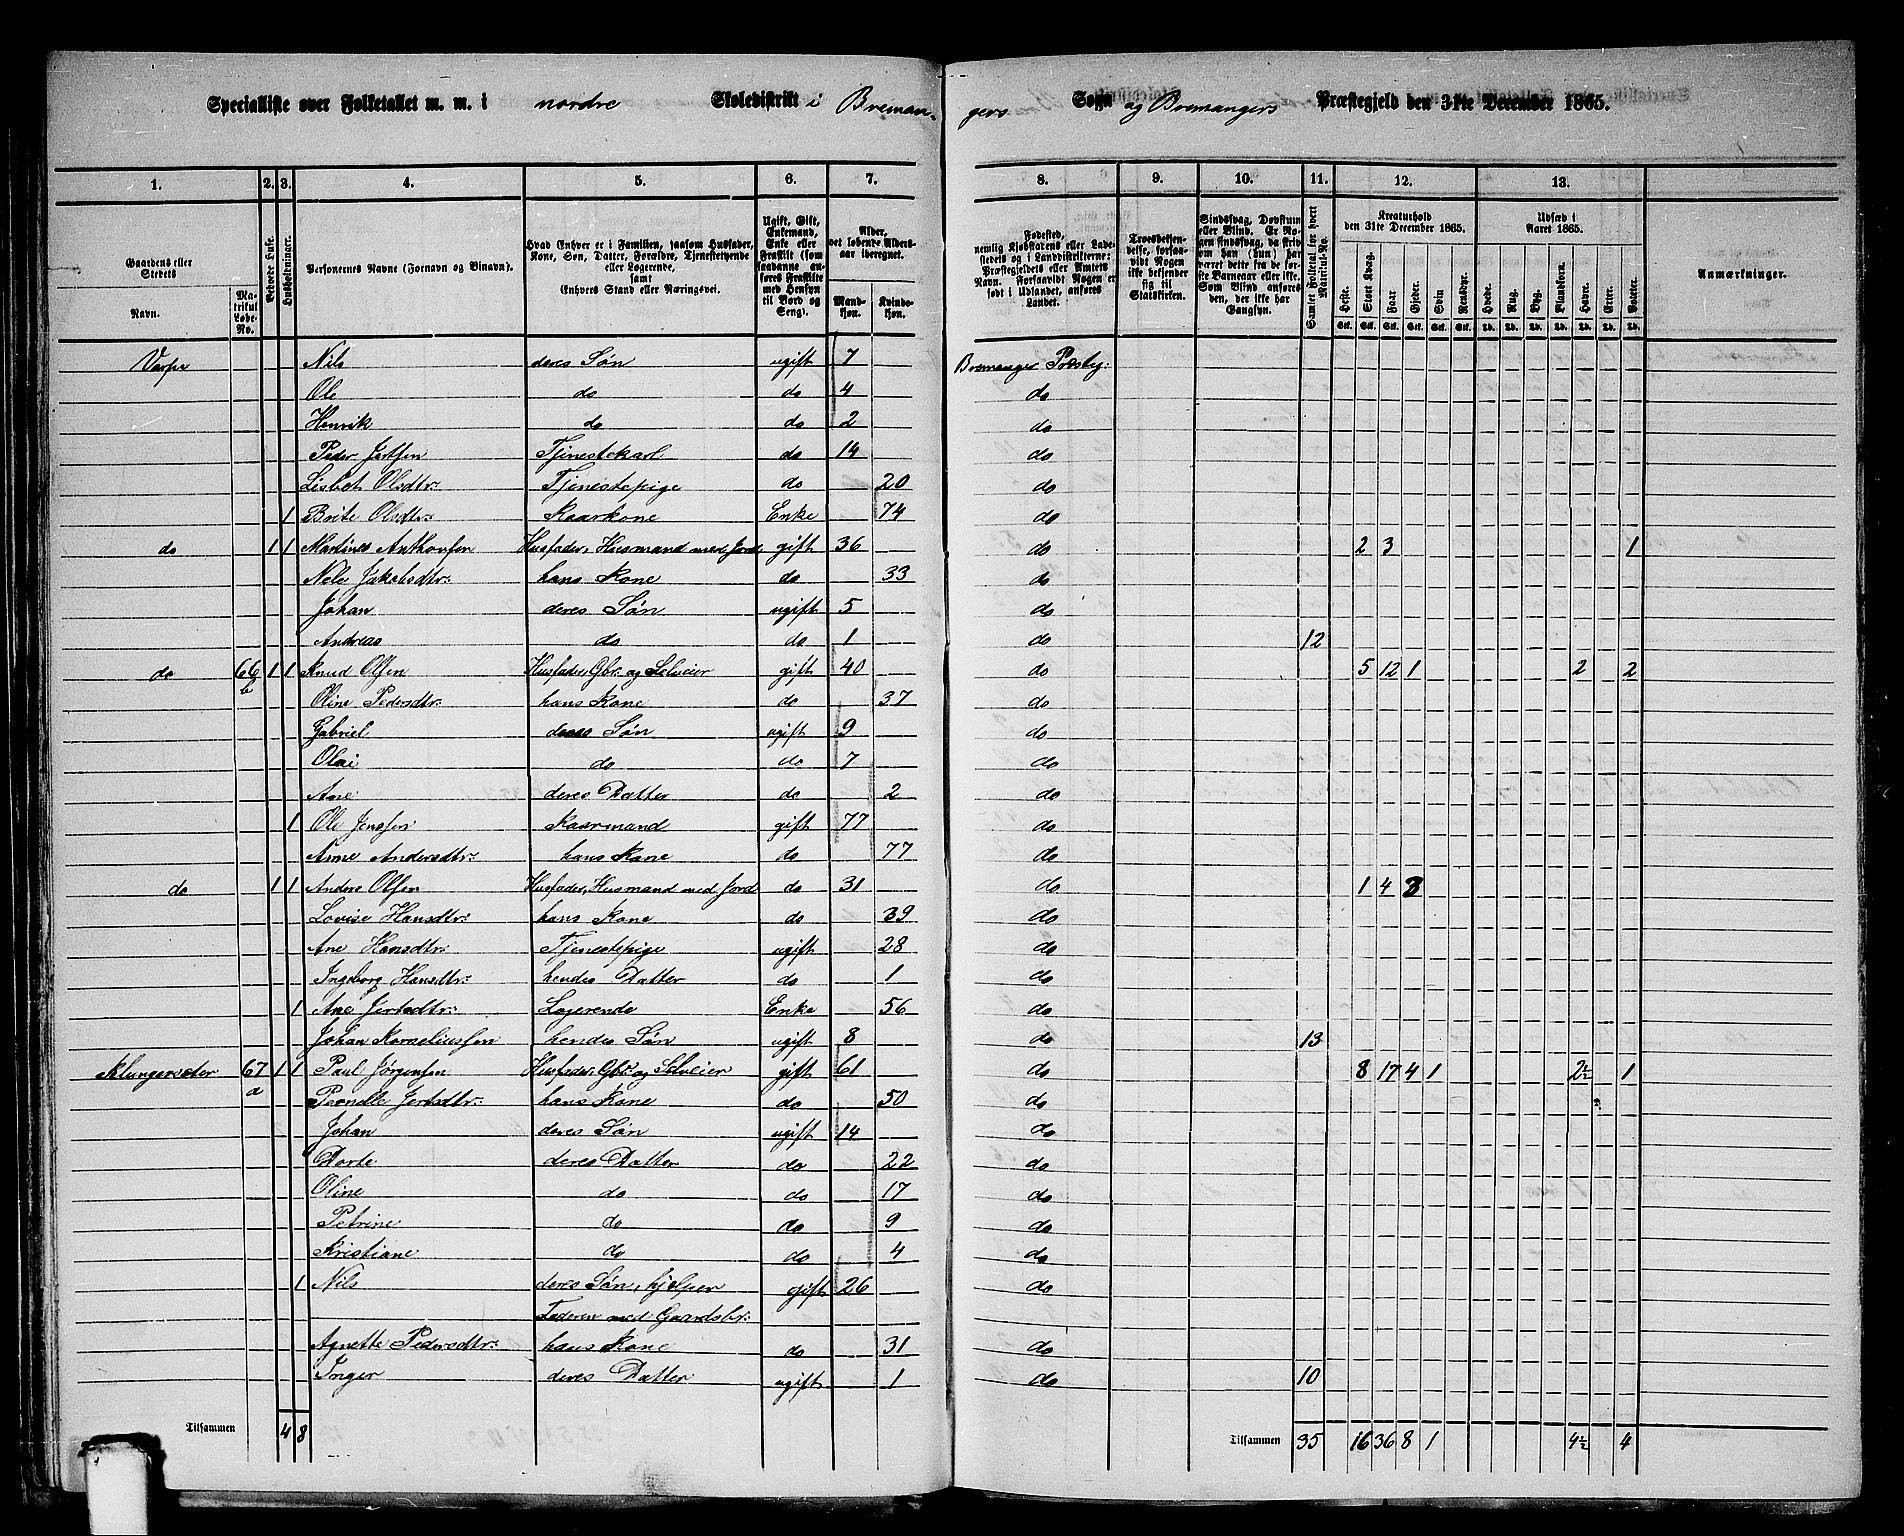 Specialliste over Folketallet m. m. i nordre Skoledistrikt i Bremangers Sogn og Bremangers Præstegjeld den 31te December 1865.
1. 2. 3. 4. 5. 6. 7. 8. 9. 10. 11. 12. 13.
Gaardens eller Stedets Navn. Matrikul Løbe-No. Beboede Huse. Husholdninger. Personernes Navne (Fornavn og Binavn). Hvad Enhver er i Familien, saasom Husfader, Kone, Søn, Datter, Forældre, Tjenestetyende eller Logerende, samt Enhvers Stand eller Næringsvei. Ugift, Gift, Enkemand, Enke eller Fraskilt (som saadanne anføres Fraskilte med Hensyn til Bord og Seng). Alder, det løbende Alders-aar iberegnet. Mandkjøn. Kvindekjøn.
Fødested, nemlig Kjøbstadens eller Ladestedets og i Landdistrikterne: Præstegjeldets eller Amtets Navn. Forsaavidt Nogen er født i Udlandet, anføres Landet. Troesbekjendelse, forsaavidt Nogen ikke bekjender sig til Statskirken. Sindssvag, Døvstum eller Blind. Er Nogen sindssvag, da skrives om han (hun) har været dette fra de første Barneaar eller ikke. Som Blind anføres den, der ikke har Gangsyn. Samlet Folketal for hvert Matrikul-No. Kreaturhold den 31te December 1865. Heste. Stort Kvæg. Faar. Gjeder. Svin. Rensdyr. Udsæd i Aaret 1865. Hvede. Rug. Byg. Blandkorn. Havre. Erter. Poteter. Anmærkninger.
Varpe Nils deres Søn ugift 7 Bremanger Præsteg:
Ole do do 4 do
Henrik do do 2 do
Peder Jertsen Tjenestekarl do 14 do
Lisbet Olsdtr: Tjenestepige do 20 do
1 Brite Olsdtr: Kaarkone Enke 74 do
do 1 1 Martines Anthonsen Husfader, Husmand med Jord gift 36 do 2 3 1
Nele Jakobsdtr: hans Kone do 33 do
Johan deres Søn ugift 5 do
Andreas do do 1 do 12
do 66 b 1 1 Knud Olsen Husfader, Gbr. og Selveier gift 40 do 5 12 1 2 2
Oline Pedersdtr: hans Kone do 37 do
Gabriel deres Søn ugift 9 do
Olai do do 7 do
Ane deres Datter do 2 do
1 Ole Jensen Kaarmand gift 77 do
Anne Andersdtr: hans Kone do 77 do
do 1 1 Anders Olsen Husfader, Husmand med Jord do 31 do 1 4 3
Lovise Hansdtr: hans Kone do 39 do
Ane Hansdtr: Tjenestepige ugift 28 do
Ingeborg Hansdtr: hendes Datter do 1 do
1 Ane Jertsdtr: Logerende Enke 56 do
Johan Korneliussen hendes Søn ugift 8 do 13
Klungeroter 67 a 1 1 Paul Jørgensen Husfader, Gbr. og Selveier gift 61 do 8 17 4 1 2½ 1
Pernelle Jertsdtr: hans Kone do 50 do
Johan deres Søn ugift 14 do
Dorte deres Datter do 22 do
Oline do do 17 do
Petrine do do 9 do
Kristiane do do 4 do
1 Nils deres Søn, hjelper gift 26 do
Faderen med Gaardsbr:
Agnette Pedersdtr: hans Kone do 31 do
Inger deres Datter ugift 1 do 10
Tilsammen 4 8 Tilsammen 35 16 36 8 1 4½ 4